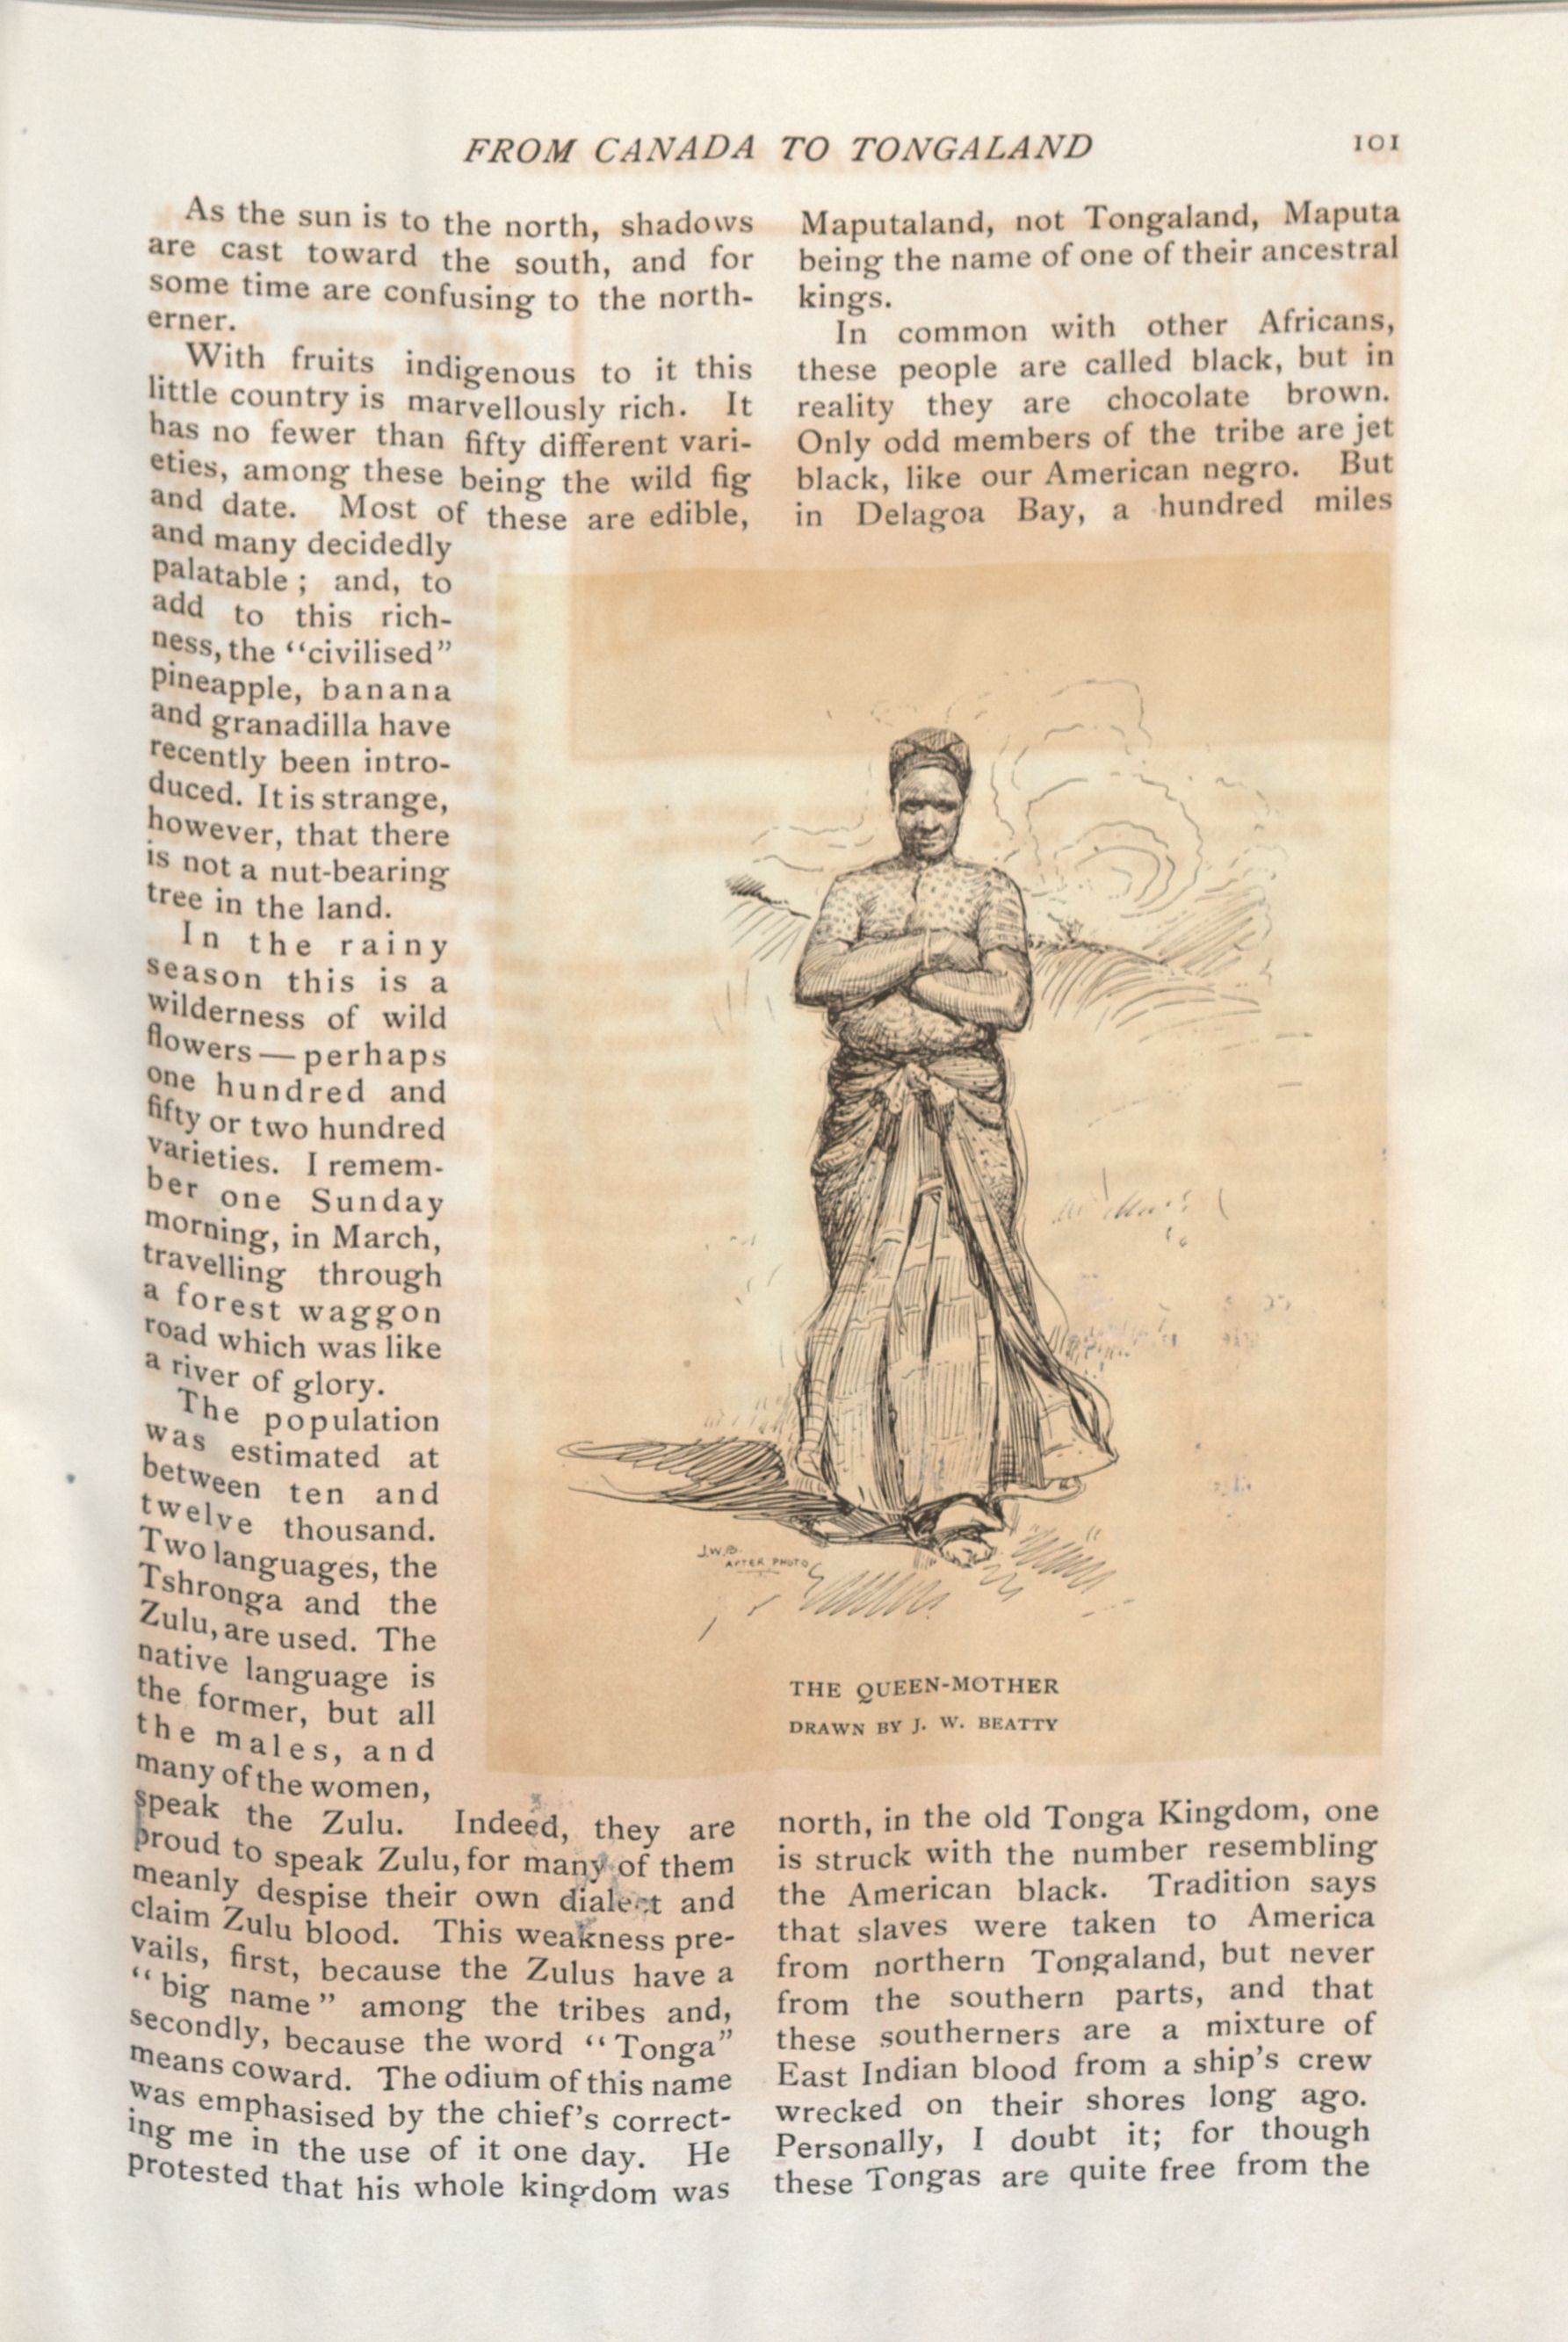 FROM CANADA TO TONGALAND
101
As the sun is to the north, shadows
are cast toward the south, and for
some time are confusing to the north-
erner.
With fruits indigenous to it this
little country is marvellously rich. It
has no fewer than fifty different vari-
eties, among these being the wild fig
and date. Most of these are edible,
and many decidedly
palatable; and, to
add to this rich-
ness, the "civilised"
pineapple, banana
and granadilla have
recently been intro-
duced. It is strange,
however, that there
is not a nut-bearing
tree in the land.
In the rainy
season this is a
wilderness of wild
flowers—perhaps
one hundred and
fifty or two hundred
varieties. I remem-
ber one Sunday
morning, in March,
travelling through
a forest waggon
road which was like
a river of glory.
The population
was estimated at
between ten and
twelve thousand.
Two languages, the
Tshronga and the
Zulu, are used. The
native language is
the former, but all
the males, and
many of the women,
speak the Zulu. Indeed, they are
proud to speak Zulu, for many of them
meanly despise their own dialect and
claim Zulu blood. This weakness pre-
vails, first, because the Zulus have a
"big name" among the tribes and,
secondly, because the word "Tonga"
means coward. The odium of this name
was emphasised by the chief's correct-
ing me in the use of it one day. He
protested that his whole kingdom was
Maputaland, not Tongaland, Maputa
being the name of one of their ancestral
kings.
In common with other Africans,
these people are called black, but in
reality they are chocolate brown.
Only odd members of the tribe are jet
black, like our American negro. But
in Delagoa Bay, a hundred miles
J.W.B.
AFTER PHOTO
THE QUEEN-MOTHER
DRAWN BY J. W. BEATTY
north, in the old Tonga Kingdom, one
is struck with the number resembling
the American black. Tradition says
that slaves were taken to America
from northern Tongaland, but never
from the southern parts, and that
these southerners are a mixture of
East Indian blood from a ship's crew
wrecked on their shores long ago.
Personally, I doubt it; for though
these Tongas are quite free from the